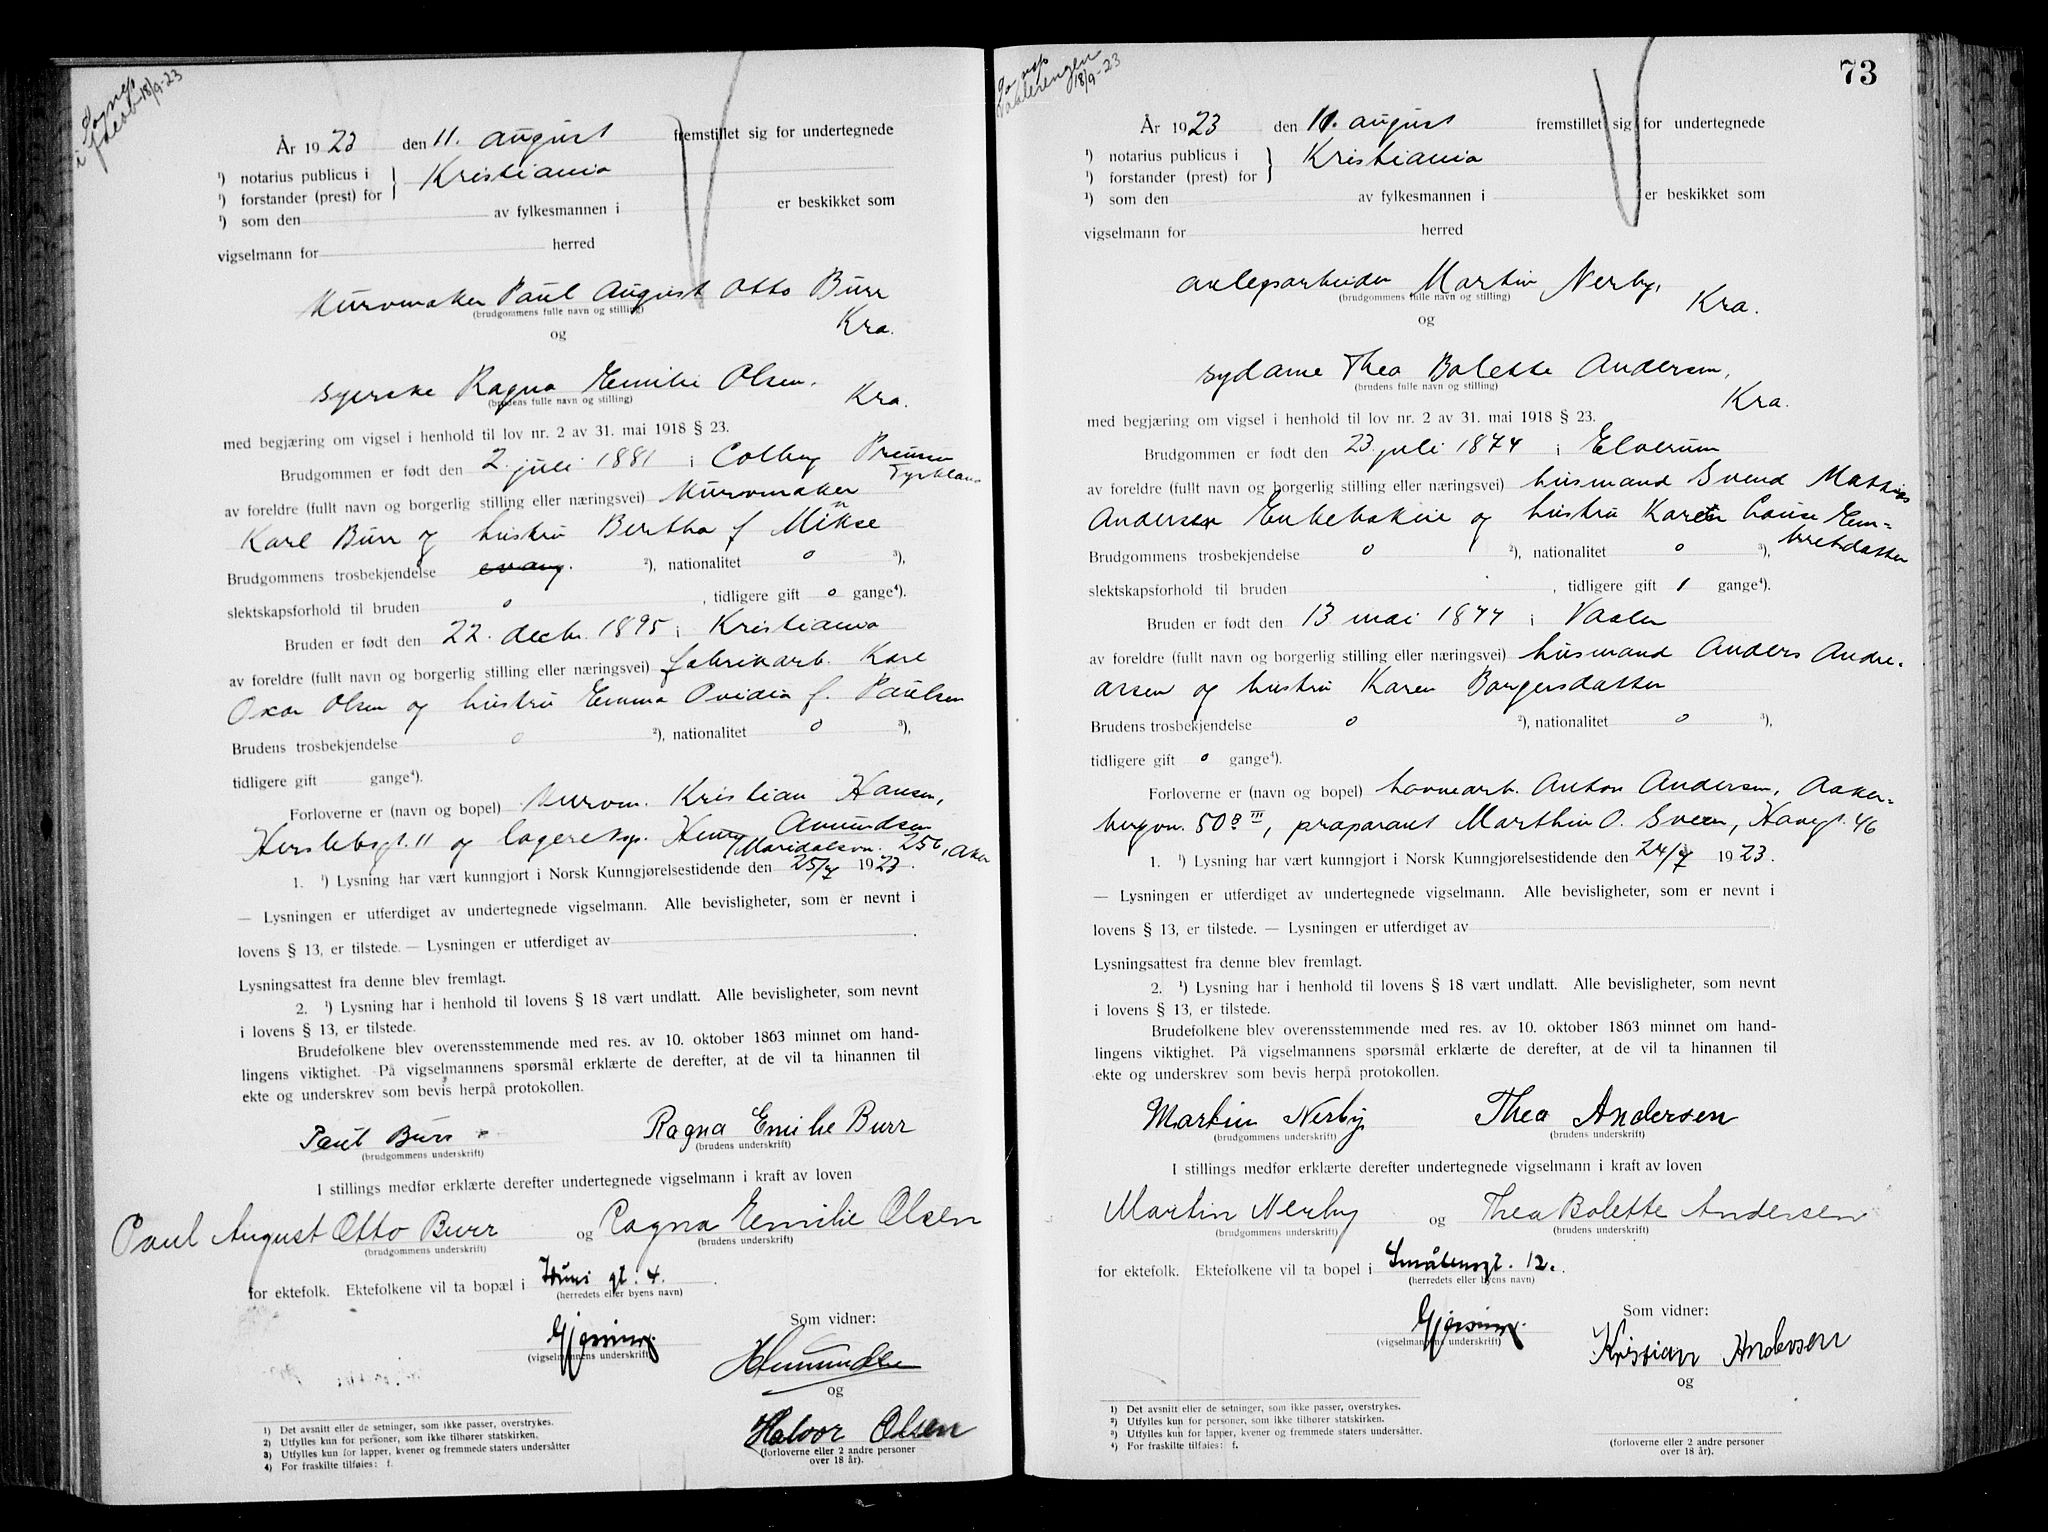 i Jakob 18/9-23
År 1923 den 11. august fremstillet sig for undertegnede
¹) notarius publicus i
¹) forstander (prest) for } Kristiania
¹) som den av fylkesmannen i er beskikket som
vigselmann for herred
Kurvmaker Paul August Otto Burr
(brudgommens fulle navn og stilling)
Kra.
og
syerske Ragna Emilie Olsen.
(brudens fulle navn og stilling)
Kra.
med begjæring om vigsel i henhold til lov nr. 2 av 31. mai 1918 § 23.
Brudgommen er født den 2. juli 1881 i Colberg Preusen
Tyskland
av foreldre (fullt navn og borgerlig stilling eller næringsvei) Kurvmaker
Karl Burr og hustru Bertha f.
Brudgommens trosbekjendelse evang. ²), nationalitet o ³),
slektskapsforhold til bruden o , tidligere gift o gange⁴).
Bruden er født den 22. decbr. 1895 i Kristiania
av foreldre (fullt navn og borgerlig stilling eller næringsvei) fabrikarb. Karl
Oskar Olsen og hustru Emma Ovidia f. Paulsen
Brudens trosbekjendelse o ²), nationalitet o ³),
tidligere gift gange⁴).
Forloverne er (navn og bopel) kurvm. Kristian Hansen,
Herslebsgt. 11 og lagereksp. Henry Amundsen
Maridalsvn. 256, Aker
1. ¹) Lysning har vært kunngjort i Norsk Kunngjørelsestidende den 25/7 1923.
— Lysningen er utferdiget av undertegnede vigselmann. Alle bevisligheter, som er nevnt i
lovens § 13, er tilstede. — Lysningen er utferdiget av .
Lysningsattest fra denne blev fremlagt.
2. ¹) Lysning har i henhold til lovens § 18 vært undlatt. Alle bevisligheter, som nevnt
i lovens § 13, er tilstede.
Brudefolkene blev overensstemmende med res. av 10. oktober 1863 minnet om hand-
lingens viktighet. På vigselmannens spørsmål erklærte de derefter, at de vil ta hinannen til
ekte og underskrev som bevis herpå protokollen.
Paul Burr Ragna Emilie Burr
(brudgommens underskrift) (brudens underskrift)
I stillings medfør erklærte derefter undertegnede vigselmann i kraft av loven
Paul August Otto Burr og Ragna Emilie Olsen
(brudgommens underskrift) (brudens underskrift)
for ektefolk. Ektefolkene vil ta bopæl i gt. 4.
(herredets eller byens navn)
Som vidner:
Gjessing
(vigselmannens underskrift)
HAmundsen
og
Halvor Olsen
(forloverne eller 2 andre personer
over 18 år).
¹) Det avsnitt eller de setninger, som ikke passer, overstrykes.
²) Utfylles kun for personer, som ikke tilhører statskirken.
³) Utfylles kun for lapper, kvener og fremmede staters undersåtter
⁴) For fraskilte tilføies: f.
73
Vaalerengen
18/9-23
År 1923 den 11. august fremstillet sig for undertegnede
¹) notarius publicus i
¹) forstander (prest) for } Kristiania
¹) som den av fylkesmannen i er beskikket som
vigselmann for herred
anlegsarbeider Martin Nerby,
(brudgommens fulle navn og stilling)
Kra.
og
sydame Thea Bolette Andersen,
(brudens fulle navn og stilling)
Kra.
med begjæring om vigsel i henhold til lov nr. 2 av 31. mai 1918 § 23.
Brudgommen er født den 23. juli 1874 i Elverum
av foreldre (fullt navn og borgerlig stilling eller næringsvei) husmand Svend Mathias
Andersen Enkebakeie og hustru Karen Louise Em-
bretdatter
Brudgommens trosbekjendelse o ²), nationalitet o ³),
slektskapsforhold til bruden , tidligere gift 1 gange⁴).
Bruden er født den 13 mai 1877 i Vaaler
av foreldre (fullt navn og borgerlig stilling eller næringsvei) husmand Anders Andre-
assen og hustru Karen Borgersdatter
Brudens trosbekjendelse o ²), nationalitet o ³),
tidligere gift o gange⁴).
Forloverne er (navn og bopel) havnearb. Anton Andersen, Aaker-
bergvn. 50 III, præparant Marthin O. Sveen, Havegt. 46
1. ¹) Lysning har vært kunngjort i Norsk Kunngjørelsestidende den 24/7 1923.
— Lysningen er utferdiget av undertegnede vigselmann. Alle bevisligheter, som er nevnt i
lovens § 13, er tilstede. — Lysningen er utferdiget av .
Lysningsattest fra denne blev fremlagt.
2. ¹) Lysning har i henhold til lovens § 18 vært undlatt. Alle bevisligheter, som nevnt
i lovens § 13, er tilstede.
Brudefolkene blev overensstemmende med res. av 10. oktober 1863 minnet om hand-
lingens viktighet. På vigselmannens spørsmål erklærte de derefter, at de vil ta hinannen til
ekte og underskrev som bevis herpå protokollen.
Martin Nerby Thea Andersen
(brudgommens underskrift) (brudens underskrift)
I stillings medfør erklærte derefter undertegnede vigselmann i kraft av loven
Martin Nerby og Thea Bolette Andersen
(brudgommens underskrift) (brudens underskrift)
for ektefolk. Ektefolkene vil ta bopel i Smålensgt. 12.
(herredets eller byens navn)
Som vidner:
Gjessing
(vigselmannens underskrift)
Kristian Andersen
og
(forloverne eller 2 andre personer
over 18 år).
¹) Det avsnitt eller de setninger, som ikke passer, overstrykes.
²) Utfylles kun for personer, som ikke tilhører statskirken.
³) Utfylles kun for lapper, kvener og fremmede staters undersåtter.
⁴) For fraskilte tilføies: f.